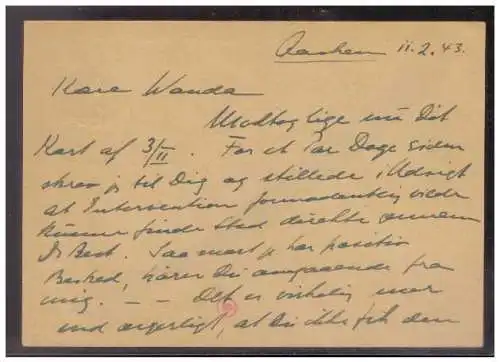 Aachen 11.2.43.
Kære Wanda
Modtog lige nu Dit
Kort af 3/II. For et Par Dage siden
skrev jeg til Dig og stillede i Udsigt
at Intervention formodentlig vilde
kunne finde Sted direkte gennem
Dr Best. Saa snart jeg har positiv
Besked, hører Du angaaende fra
mig. — — Det er virkelig mer
end ærgerligt, at Du ikke fik den